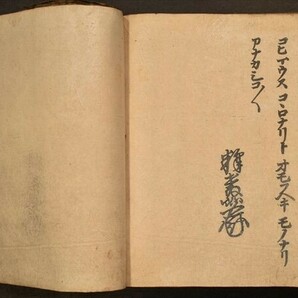 コヒマウスコヽロナリトオモフヘキモノナリ
アナカシコ〱
釋